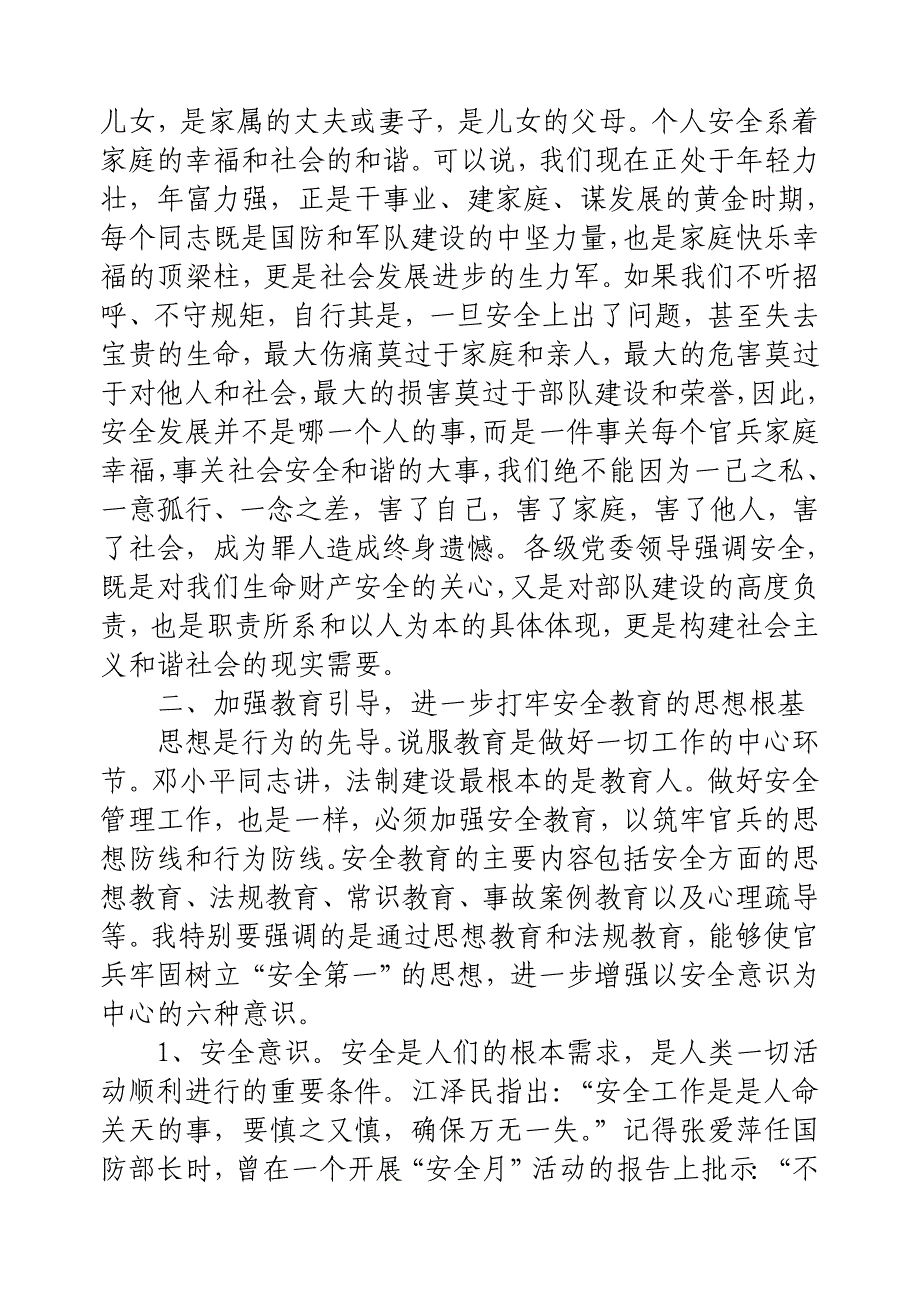 儿女，是家属的丈夫或妻子，是儿女的父母。个人安全系着
家庭的幸福和社会的和谐。可以说，我们现在正处于年轻力
壮，年富力强，正是干事业、建家庭、谋发展的黄金时期，
每个同志既是国防和军队建设的中坚力量，也是家庭快乐幸
福的顶梁柱，更是社会发展进步的生力军。如果我们不听招
呼、不守规矩，自行其是，一旦安全上出了问题，甚至失去
宝贵的生命，最大伤痛莫过于家庭和亲人，最大的危害莫过
于对他人和社会，最大的损害莫过于部队建设和荣誉，因此，
安全发展并不是哪一个人的事，而是一件事关每个官兵家庭
幸福，事关社会安全和谐的大事，我们绝不能因为一己之私、
一意孤行、一念之差，害了自己，害了家庭，害了他人，害
了社会，成为罪人造成终身遗憾。各级党委领导强调安全，
既是对我们生命财产安全的关心，又是对部队建设的高度负
责，也是职责所系和以人为本的具体体现，更是构建社会主
义和谐社会的现实需要。
二、加强教育引导，进一步打牢安全教育的思想根基
思想是行为的先导。说服教育是做好一切工作的中心环
节。邓小平同志讲，法制建设最根本的是教育人。做好安全
管理工作，也是一样，必须加强安全教育，以筑牢官兵的思
想防线和行为防线。安全教育的主要内容包括安全方面的思
想教育、法规教育、常识教育、事故案例教育以及心理疏导
等。我特别要强调的是通过思想教育和法规教育，能够使官
兵牢固树立“安全第一”的思想，进一步增强以安全意识为
中心的六种意识。
1、安全意识。安全是人们的根本需求，是人类一切活
动顺利进行的重要条件。江泽民指出：“安全工作是是人命
关天的事，要慎之又慎，确保万无一失。”记得张爱萍任国
防部长时，曾在一个开展“安全月”活动的报告上批示：“不